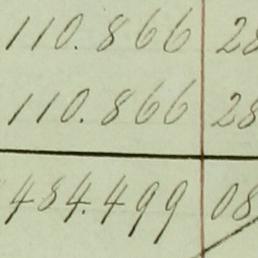 110.866 28
110.866 28
484.499 08